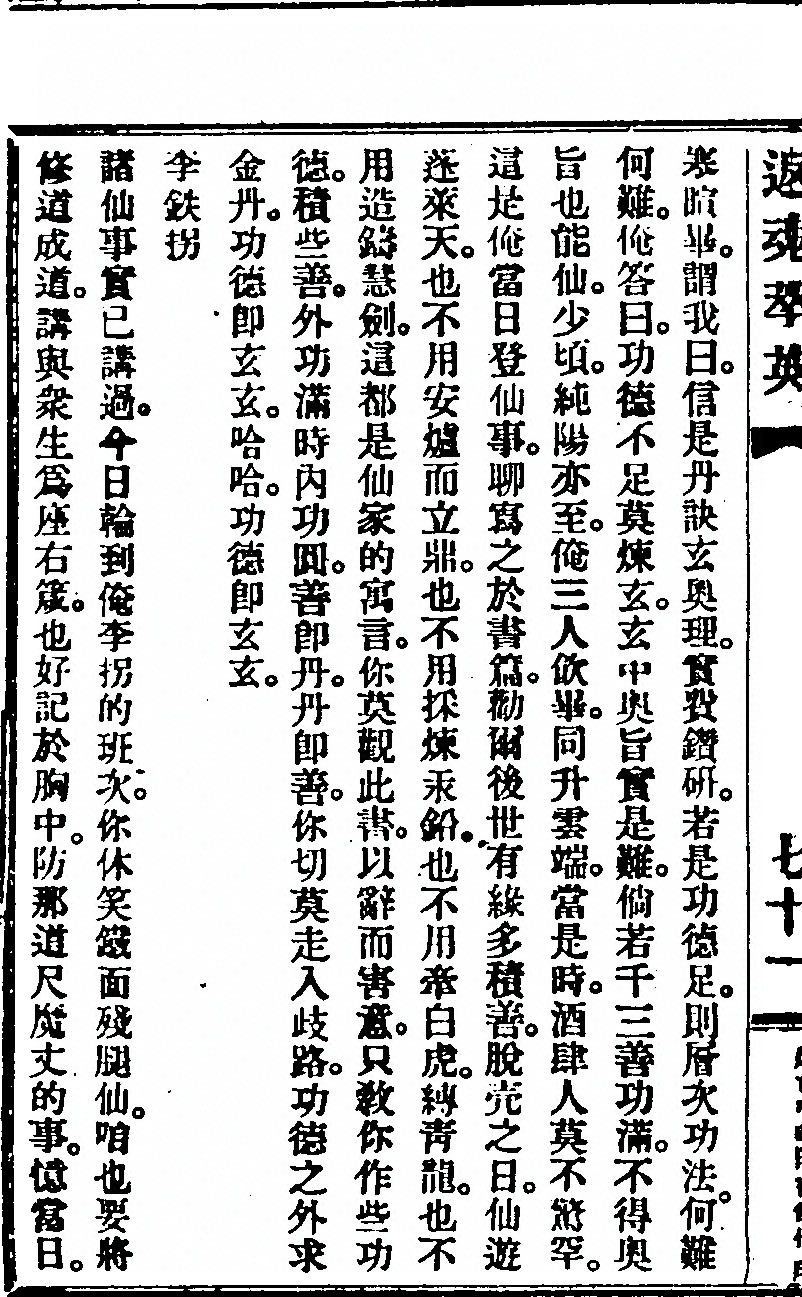 返魂萃英
七十一
寒暄畢。謂我曰。信是丹訣玄奧理。實費鑽研。若是功德足。則層次功法。何難
何難。俺答曰。功德不足莫煉玄。玄中奥旨實是難。倘若千三善功滿。不得奧
旨也能仙。少頃。純陽亦至。俺三人飲畢。同升雲端。當是時。酒肆人莫不驚罕。
這是俺當日登仙事。聊寫之於書篇。勸爾後世有緣多積善。脫壳之日。仙遊
蓬萊天。也不用安爐而立鼎。也不用採煉汞鉛。也不用牽白虎。縛青龍。也不
用造鑄慧劍。這都是仙家的寓言。你莫觀此書。以辭而害意。只教你作些功
德。積些善。外功滿時內功圓。善卽丹。丹卽善。你切莫走入歧路。功德之外求
金丹。功德卽玄玄。哈哈。功德卽玄玄。
李鉄拐
諸仙事實已講過。今日輪到俺李拐的班次。你休笑鐵面殘腿仙。咱也要將
修道成道。講與衆生爲座右箴。也好記於胸中。防那道尺魔丈的事。憶當日。